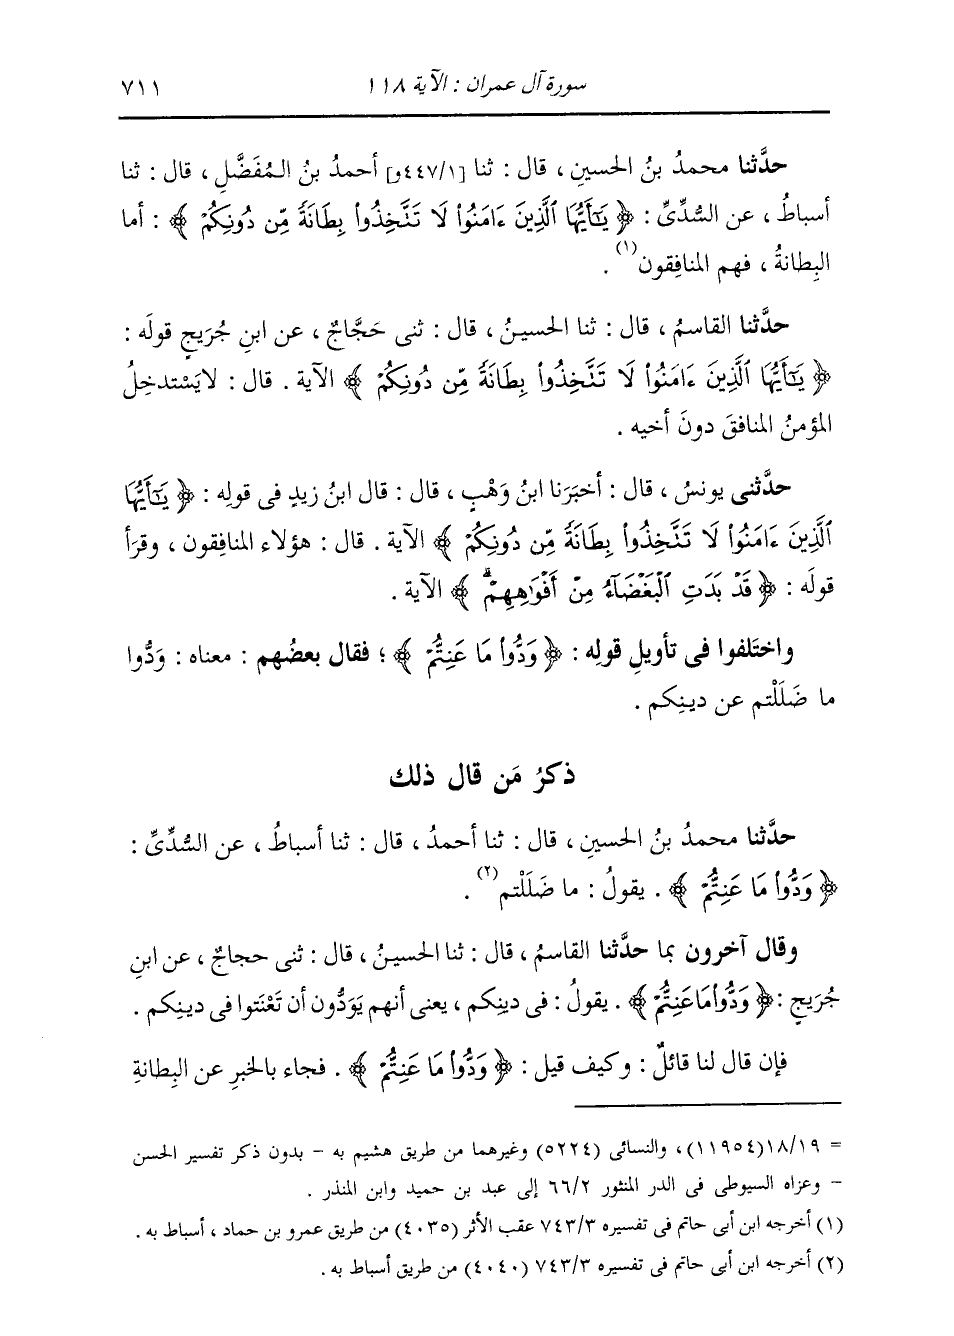 سورة آل عمران : الآية ١١٨ ٧١١
حدَّثنا محمدُ بنُ الحسينِ ، قال : ثنا [٤٤٧/١و] أحمدُ بنُ المُفَضَّلِ ، قال : ثنا
أسباطُ ، عن السُّدِّىِّ : ﴿ يَٰٓأَيُّهَا ٱلَّذِينَ ءَامَنُواْ لَا تَتَّخِذُواْ بِطَانَةً مِّن دُونِكُمْ ﴾ : أما
البِطانةُ ، فهم المنافِقون(١) .
حدَّثنا القاسمُ ، قال : ثنا الحسينُ ، قال : ثنى حَجَّاجٌ ، عن ابنِ جُرَيجٍ قولَه :
﴿ يَٰٓأَيُّهَا ٱلَّذِينَ ءَامَنُواْ لَا تَتَّخِذُواْ بِطَانَةً مِّن دُونِكُمْ ﴾ الآية . قال : لا يَسْتدخِلُ
المؤمنُ المنافقَ دونَ أخيه .
حدَّثنى يونسُ ، قال : أخبَرَنا ابنُ وَهْبٍ ، قال : قال ابنُ زيدٍ فى قولِه : ﴿ يَٰٓأَيُّهَا
ٱلَّذِينَ ءَامَنُواْ لَا تَتَّخِذُواْ بِطَانَةً مِّن دُونِكُمْ ﴾ الآية . قال : هؤلاء المنافقون ، وقرَأ
قولَه : ﴿ قَدْ بَدَتِ ٱلْبَغْضَآءُ مِنْ أَفْوَٰهِهِمْ ۖ ﴾ الآية .
واختَلفوا فى تأويلِ قولِه : ﴿ وَدُّواْ مَا عَنِتُّمْ ﴾ ؛ فقال بعضُهم : معناه : وَدُّوا
ما ضَلَلْتم عن دينِكم .
ذكرُ مَن قال ذلك
حدَّثنا محمدُ بنُ الحسينِ ، قال : ثنا أحمدُ ، قال : ثنا أسباطُ ، عن السُّدِّىِّ :
﴿ وَدُّواْ مَا عَنِتُّمْ ﴾ . يقولُ : ما ضَلَلْتم(٢) .
وقال آخرون بما حدَّثنا القاسمُ ، قال : ثنا الحسينُ ، قال : ثنى حجاجٌ ، عن ابنِ
جُرَيجٍ : ﴿ وَدُّواْ مَا عَنِتُّمْ ﴾ . يقولُ : فى دينِكم ، يعنى أنهم يَوَدُّون أن تَعْنَتوا فى دينِكم .
فإن قال لنا قائلٌ : وكيف قيل : ﴿ وَدُّواْ مَا عَنِتُّمْ ﴾ . فجاء بالخبرِ عن البِطانةِ
= ١٨/١٩ (١١٩٥٤) ، والنسائى (٥٢٢٤) وغيرهما من طريق هشيم به - بدون ذكر تفسير الحسن
- وعزاه السيوطى فى الدر المنثور ٦٦/٢ إلى عبد بن حميد وابن المنذر .
(١) أخرجه ابن أبى حاتم فى تفسيره ٧٤٣/٣ عقب الأثر (٤٠٣٥) من طريق عمرو بن حماد ، أسباط به .
(٢) أخرجه ابن أبى حاتم فى تفسيره ٧٤٣/٣ (٤٠٤٠) من طريق أسباط به .